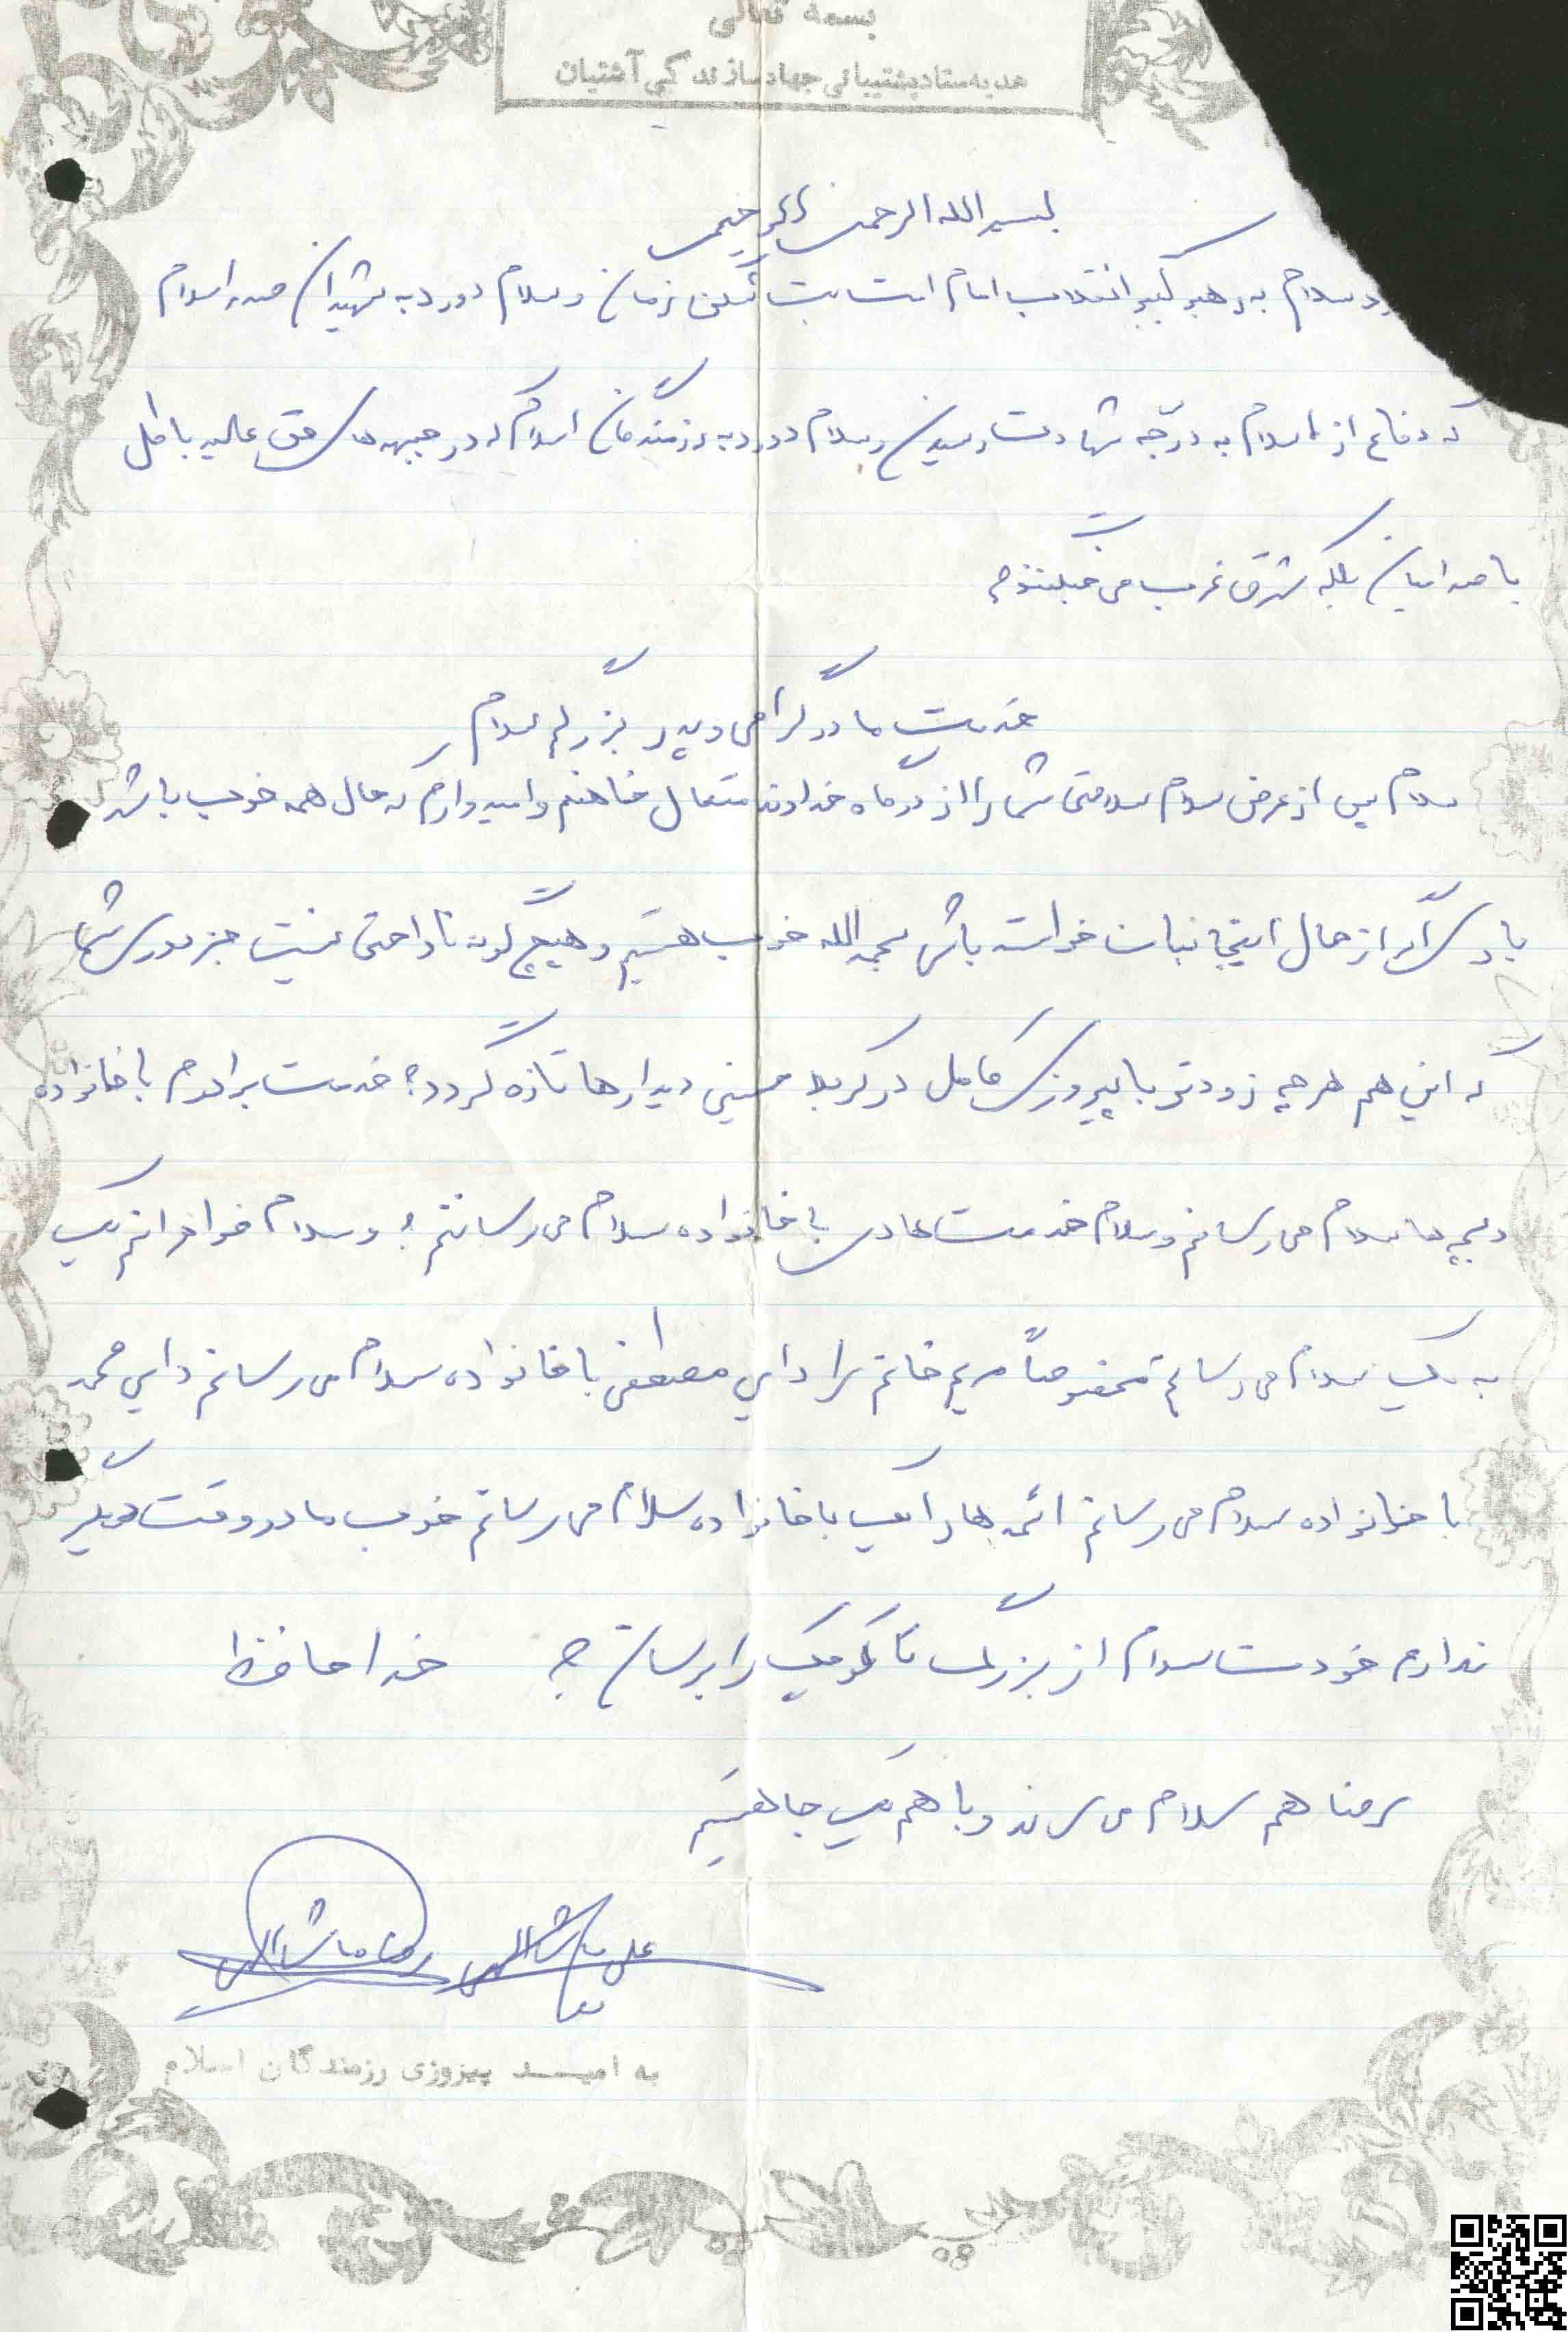 بسمه تعالی
هدیه ستاد پشتیبانی جهاد سازندگی آشتیان
بسم الله الرحمن الرحیم
سلام به رهبر کبیر انقلاب امام امت بت شکن زمان و سلام درود به شهیدان صدر اسلام
که دفاع از اسلام به درجه شهادت رسیدن و سلام درود به رزمندگان اسلام که در جبهه های حق علیه باطل
با صدامیان بلکه شرق غرب می جنگند
خدمت مادر گرامی و پدر بزرگم سلام
سلام پس از عرض سلام سلامتی شما را از درگاه خداوند متعال خاهنم و امیدوارم که حال همه خوب باشد
باری اگر از حال اینجانبان خواسته باشی بحمدالله خوب هستیم و هیچ گونه ناراحتی نیست جز دوری شما
که این هم هرچه زودتر با پیروزی کامل در کربلا حسینی دیدارها تازه گردد خدمت برادرم با خانواده
و بچه ها سلام می رسانم و سلام خدمت هادی با خانواده سلام می رسانم و سلام خواهرانم یک
به یک سلام می رسانم مخصوصاً مریم خانم را دایی مصطفی با خانواده سلام می رسانم دایی محمد
با خانواده سلام می رسانم با خانواده سلام می رسانم خوب مادر وقت دیگر
ندارم خودت سلام از بزرگ تا کوچک را برسان خدا حافظ
رضا هم سلام می رسوند و با هم یک جا هستیم
علی ماشاالهی رضا ماشاالهی
به امید پیروزی رزمندگان اسلام